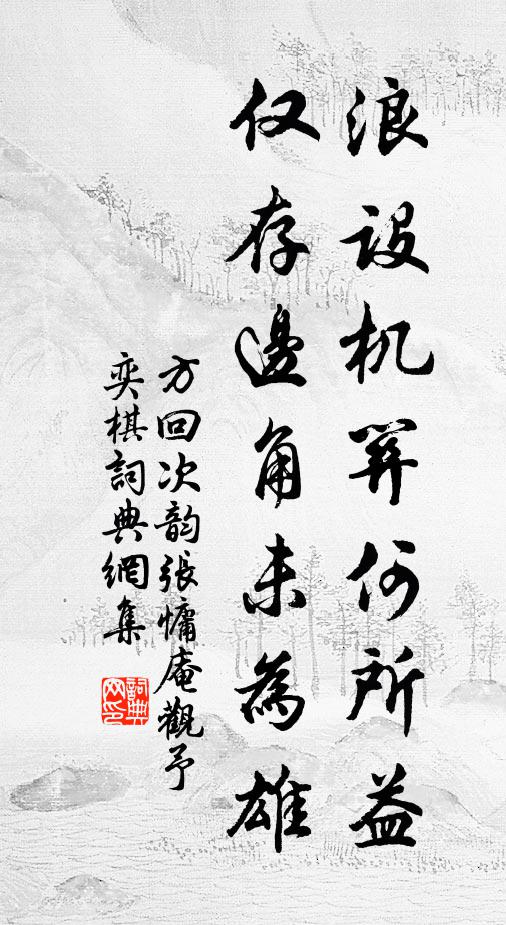 浪设机穽何所益
仅存邊角未為雄
方回次韵張慵庵觀予
奕棋詞典網集
詞典
网印